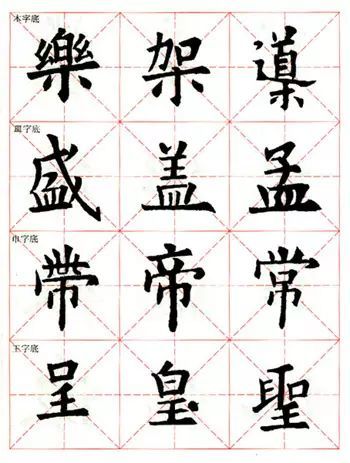 木字底
樂架導
皿字底
盛盖孟
巾字底
帶帝常
王字底
呈皇聖